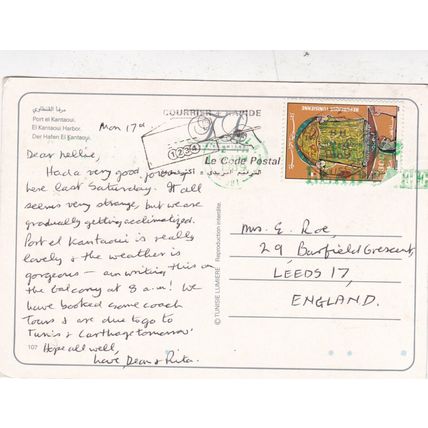 مرفأ القنطاوي
Port el Kantaoui.
El Kantaoui Harbor.
Der Hafen El Kantaoui.
Mon 17th
COURRIER
1234
Le Code Postal
REPUBLIQUE TUNISIENNE
Dear Nellie,
Had a very good journey
here last Saturday. It all
seems very strange, but we are
gradually getting acclimatized.
Port el Kantaoui is really
lovely & the weather is
gorgeous — am writing this on
the balcony at 8 a.m! We
have booked some coach
Tours & are due to go to
Tunis & Carthage tomorrow.
Hope all well,
Love, & Rita.
107
© TUNISIE LUMIERE Reproduction interdite.
Mrs. E. Roe,
29 Barfield Crescent,
LEEDS 17,
ENGLAND.